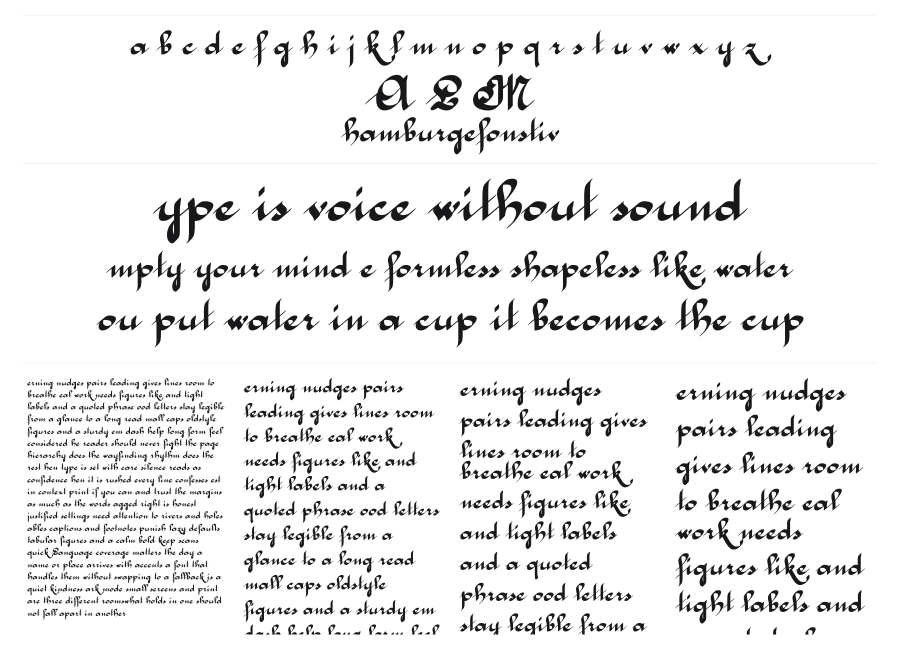 a b c d e f g h i j k l m n o p q r s t u v w x y z
A L M
hamburgefonstiv
ype is voice without sound
mpty your mind e formless shapeless like water
ou put water in a cup it becomes the cup
erning nudges pairs leading gives lines room to
breathe eal work needs figures like and tight
labels and a quoted phrase ood letters stay legible
from a glance to a long read mall caps oldstyle
figures and a sturdy em dash help long form feel
considered he reader should never fight the page
hierarchy does the wayfinding rhythm does the
rest hen type is set with care silence reads as
confidence hen it is rushed every line confesses est
in context print if you can and trust the margins
as much as the words agged right is honest
justified settings need attention to rivers and holes
ables captions and footnotes punish lazy defaults
tabular figures and a calm bold keep scans
quick Language coverage matters the day a
name or place arrives with accents a font that
handles them without swapping to a fallback is a
quiet kindness ark mode small screens and print
are three different roomswhat holds in one should
not fall apart in another
erning nudges pairs
leading gives lines room
to breathe eal work
needs figures like and
tight labels and a
quoted phrase ood letters
stay legible from a
glance to a long read
mall caps oldstyle
figures and a sturdy em
dash help long form feel
erning nudges
pairs leading gives
lines room to
breathe eal work
needs figures like
and tight labels
and a quoted
phrase ood letters
stay legible from a
erning nudges
pairs leading
gives lines room
to breathe eal
work needs
figures like and
tight labels and